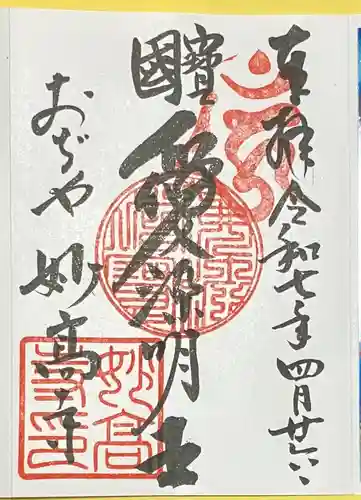 奉拝 令和七年四月廿六日
國寶
愛染明王
おぢや 妙高寺
妙高寺印